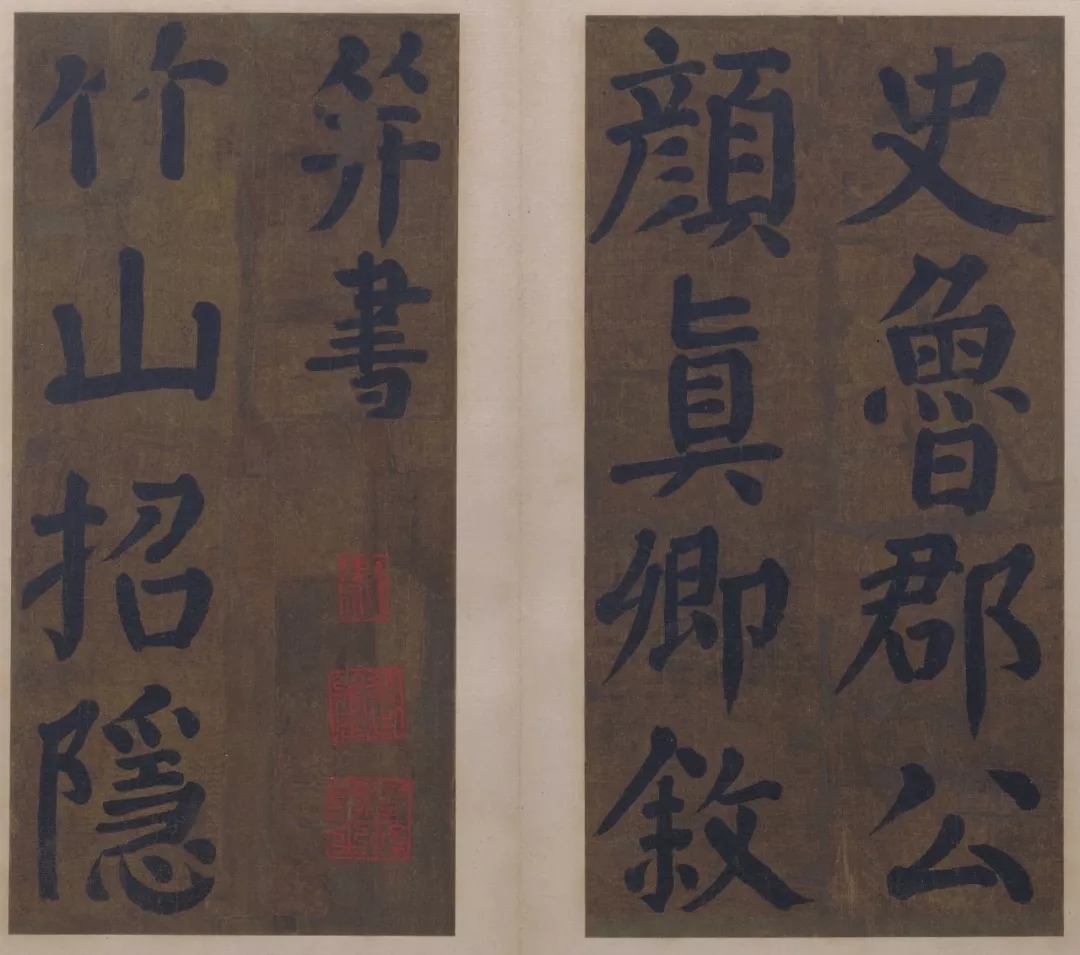 史魯郡公
顔真卿敘
并書
竹山招隱